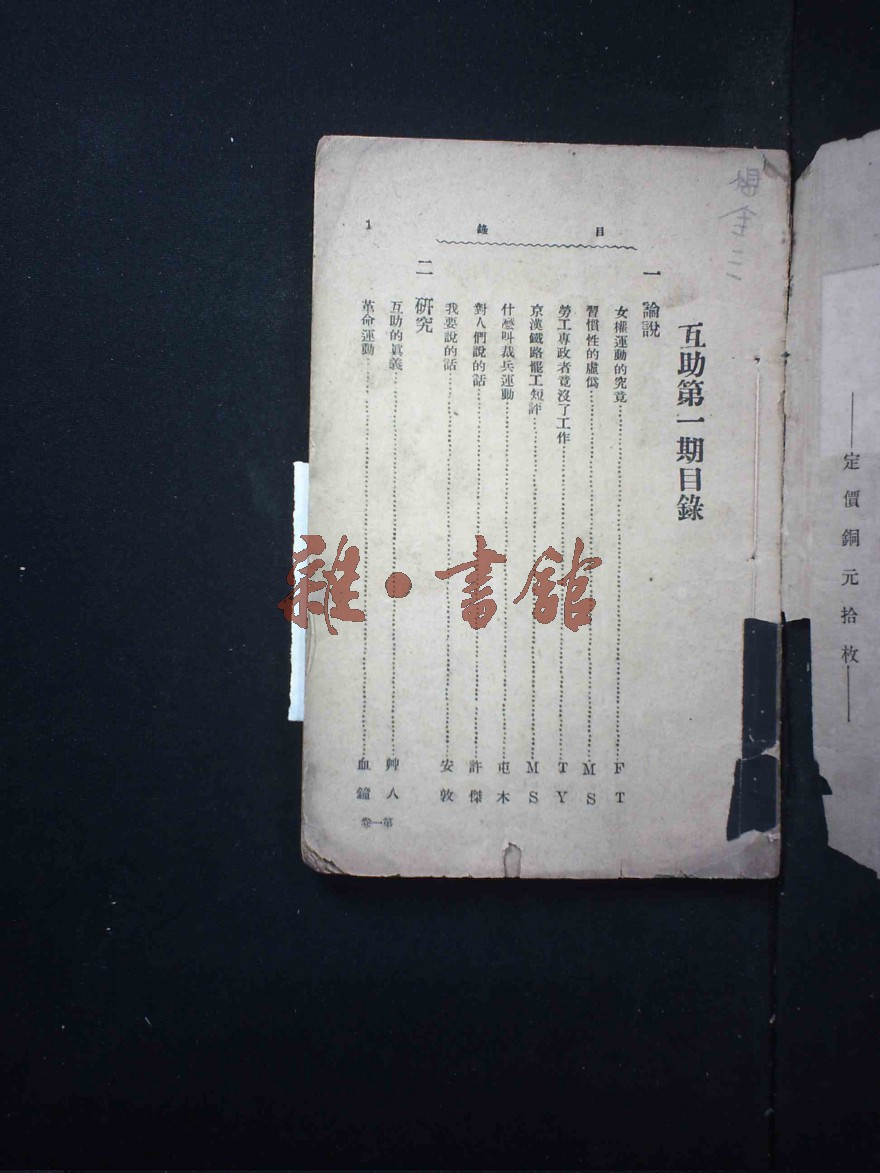 定價銅元拾枚
互助第一期目錄
目錄
1
一 論說
女權運動的究竟 F T
習慣性的虛僞 M S
勞工專政者竟沒了工作 T Y
京漢鐵路罷工短評 M S
什麼叫裁兵運動 屯木
對人們說的話 許傑
我要說的話 安敦
二 研究
互助的眞義 艸人
革命運動 血鐘
第一卷
雜·書館